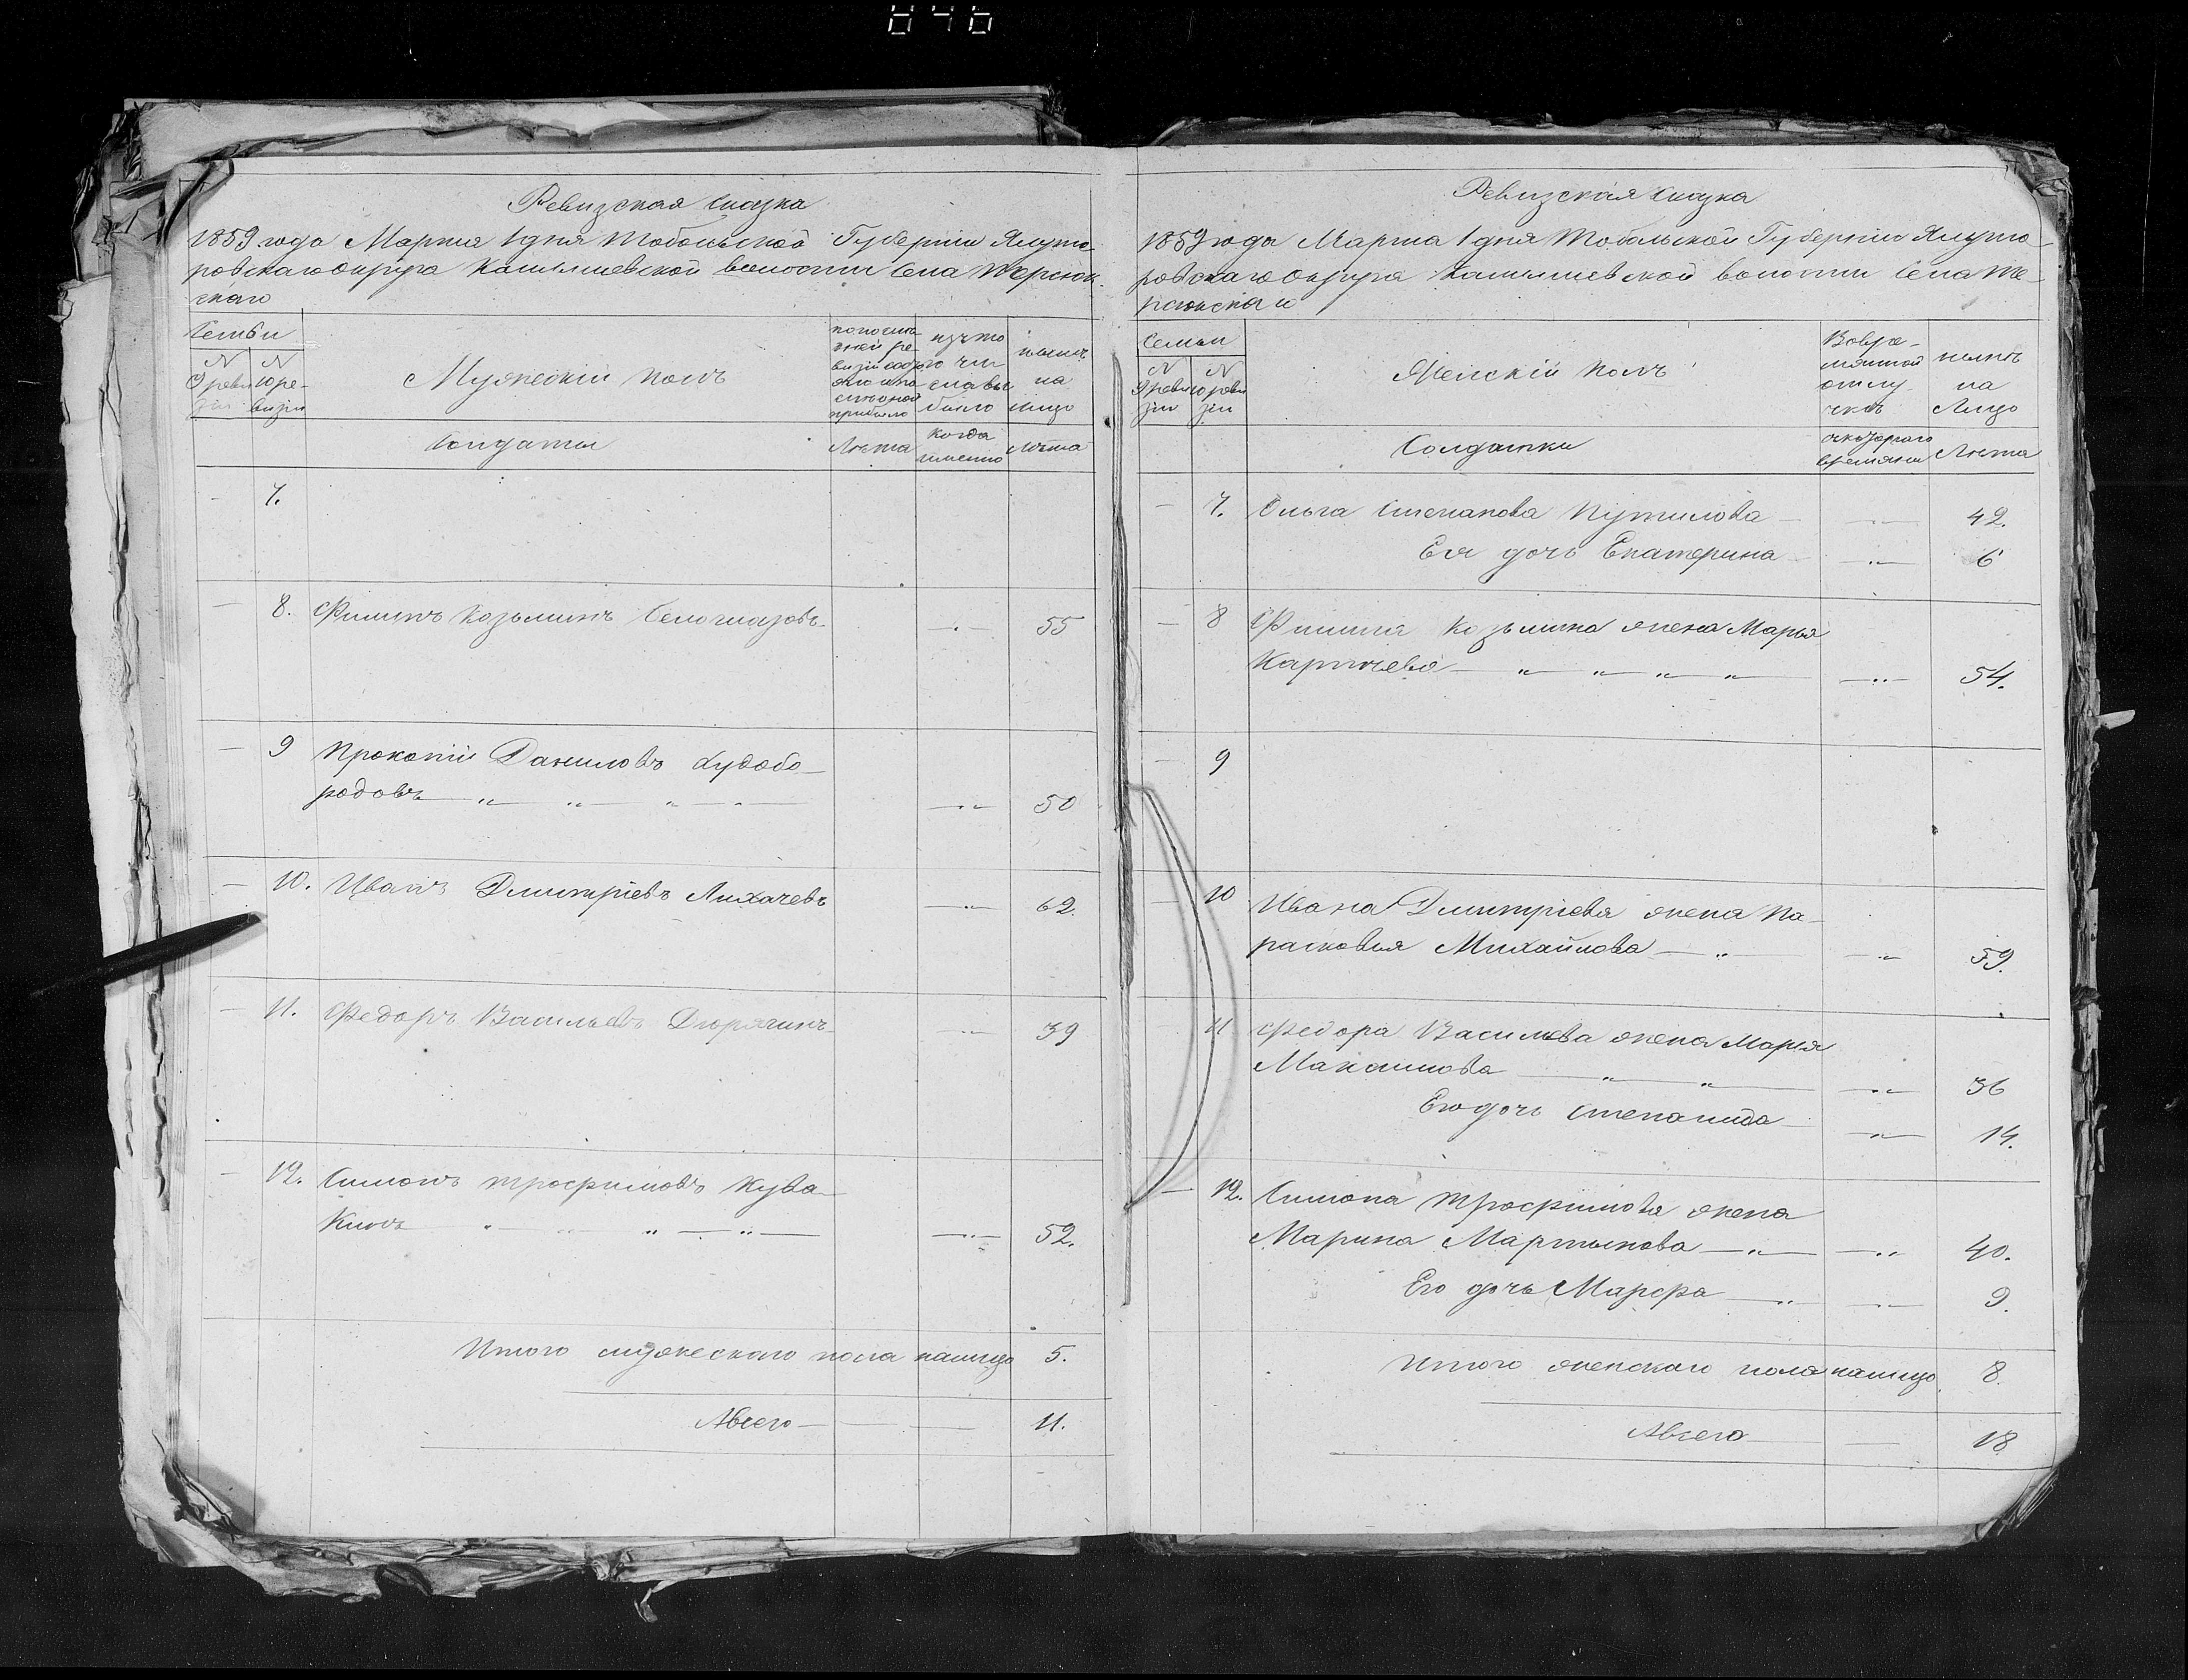 846
Ревизская сказка
1859 года Марта 1 дня Тобольской Губернии Ялуто-
ровскаго округа Камышевской волости Села Терсюк-
скаго
Семьи
N
9 реви
зіи
N
10 ре-
визіи
Мужескій полъ
нынѣ
на
лицо
Солдаты
Лѣта
когда
именно
Лѣта
7.
8. Филипъ Козьминъ Белоглазовъ 55
9 Прокопій Даниловъ Худобо-
родовъ 50
10. Иванъ Дмитріевъ Лихачевъ 62.
11. Федоръ Васильевъ Дюрягинъ 39
12. Симонъ Трофимовъ Кува-
кинъ 52.
Итого мужескаго пола налицо 5.
Авсего 11.
Ревизская сказка
1859 года Марта 1 дня Тобольской Губерніи Ялуто-
ровскаго округа Камышевской волости Села Те-
рсюкскаго
Семьи
N
9 реви
зіи
N
10 реви
зіи
Женскій полъ
Вовре-
мянной
отлу-
чкѣ
нынѣ
на
Лицо
Солдатки
скотораго
времяни
Лѣта
7. Ольга Степанова Путилова 42.
Ея дочь Екатерина 6
8 Филипа Козьмина жена Марья
54.
9
10 Ивана Дмитріева жена Па-
расковья Михайлова 59.
11 Федора Васильева жена Марія
Максимова 36
Его дочь Степанида 14.
12. Симона Трофимова жена
Марина Мартынова 40.
Его дочь Марфа 9.
Итого женскаго пола налицо 8.
Авсего 18